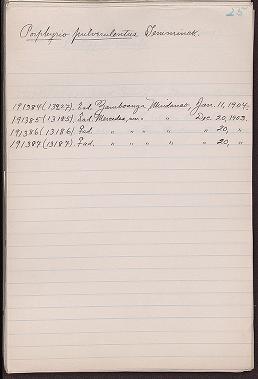 25
Porphyrio pulverulentus Temminck.
191384 (13927). Ead. Zamboanga Mindanao, Jan. 11, 1904.
191385 (13185). Ead. Mercedes, " Dec. 20, 1903.
191386 (13186). Fad. " " " " " 20, "
191387 (13187). Fad. " " " " " 20, "